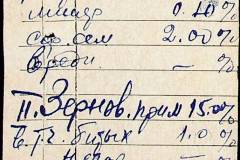 0.10%
сор. сем 2.00%
Вредн. — %
П. Зернов. прим 15.00%
в. т. ч. битых 1.0%